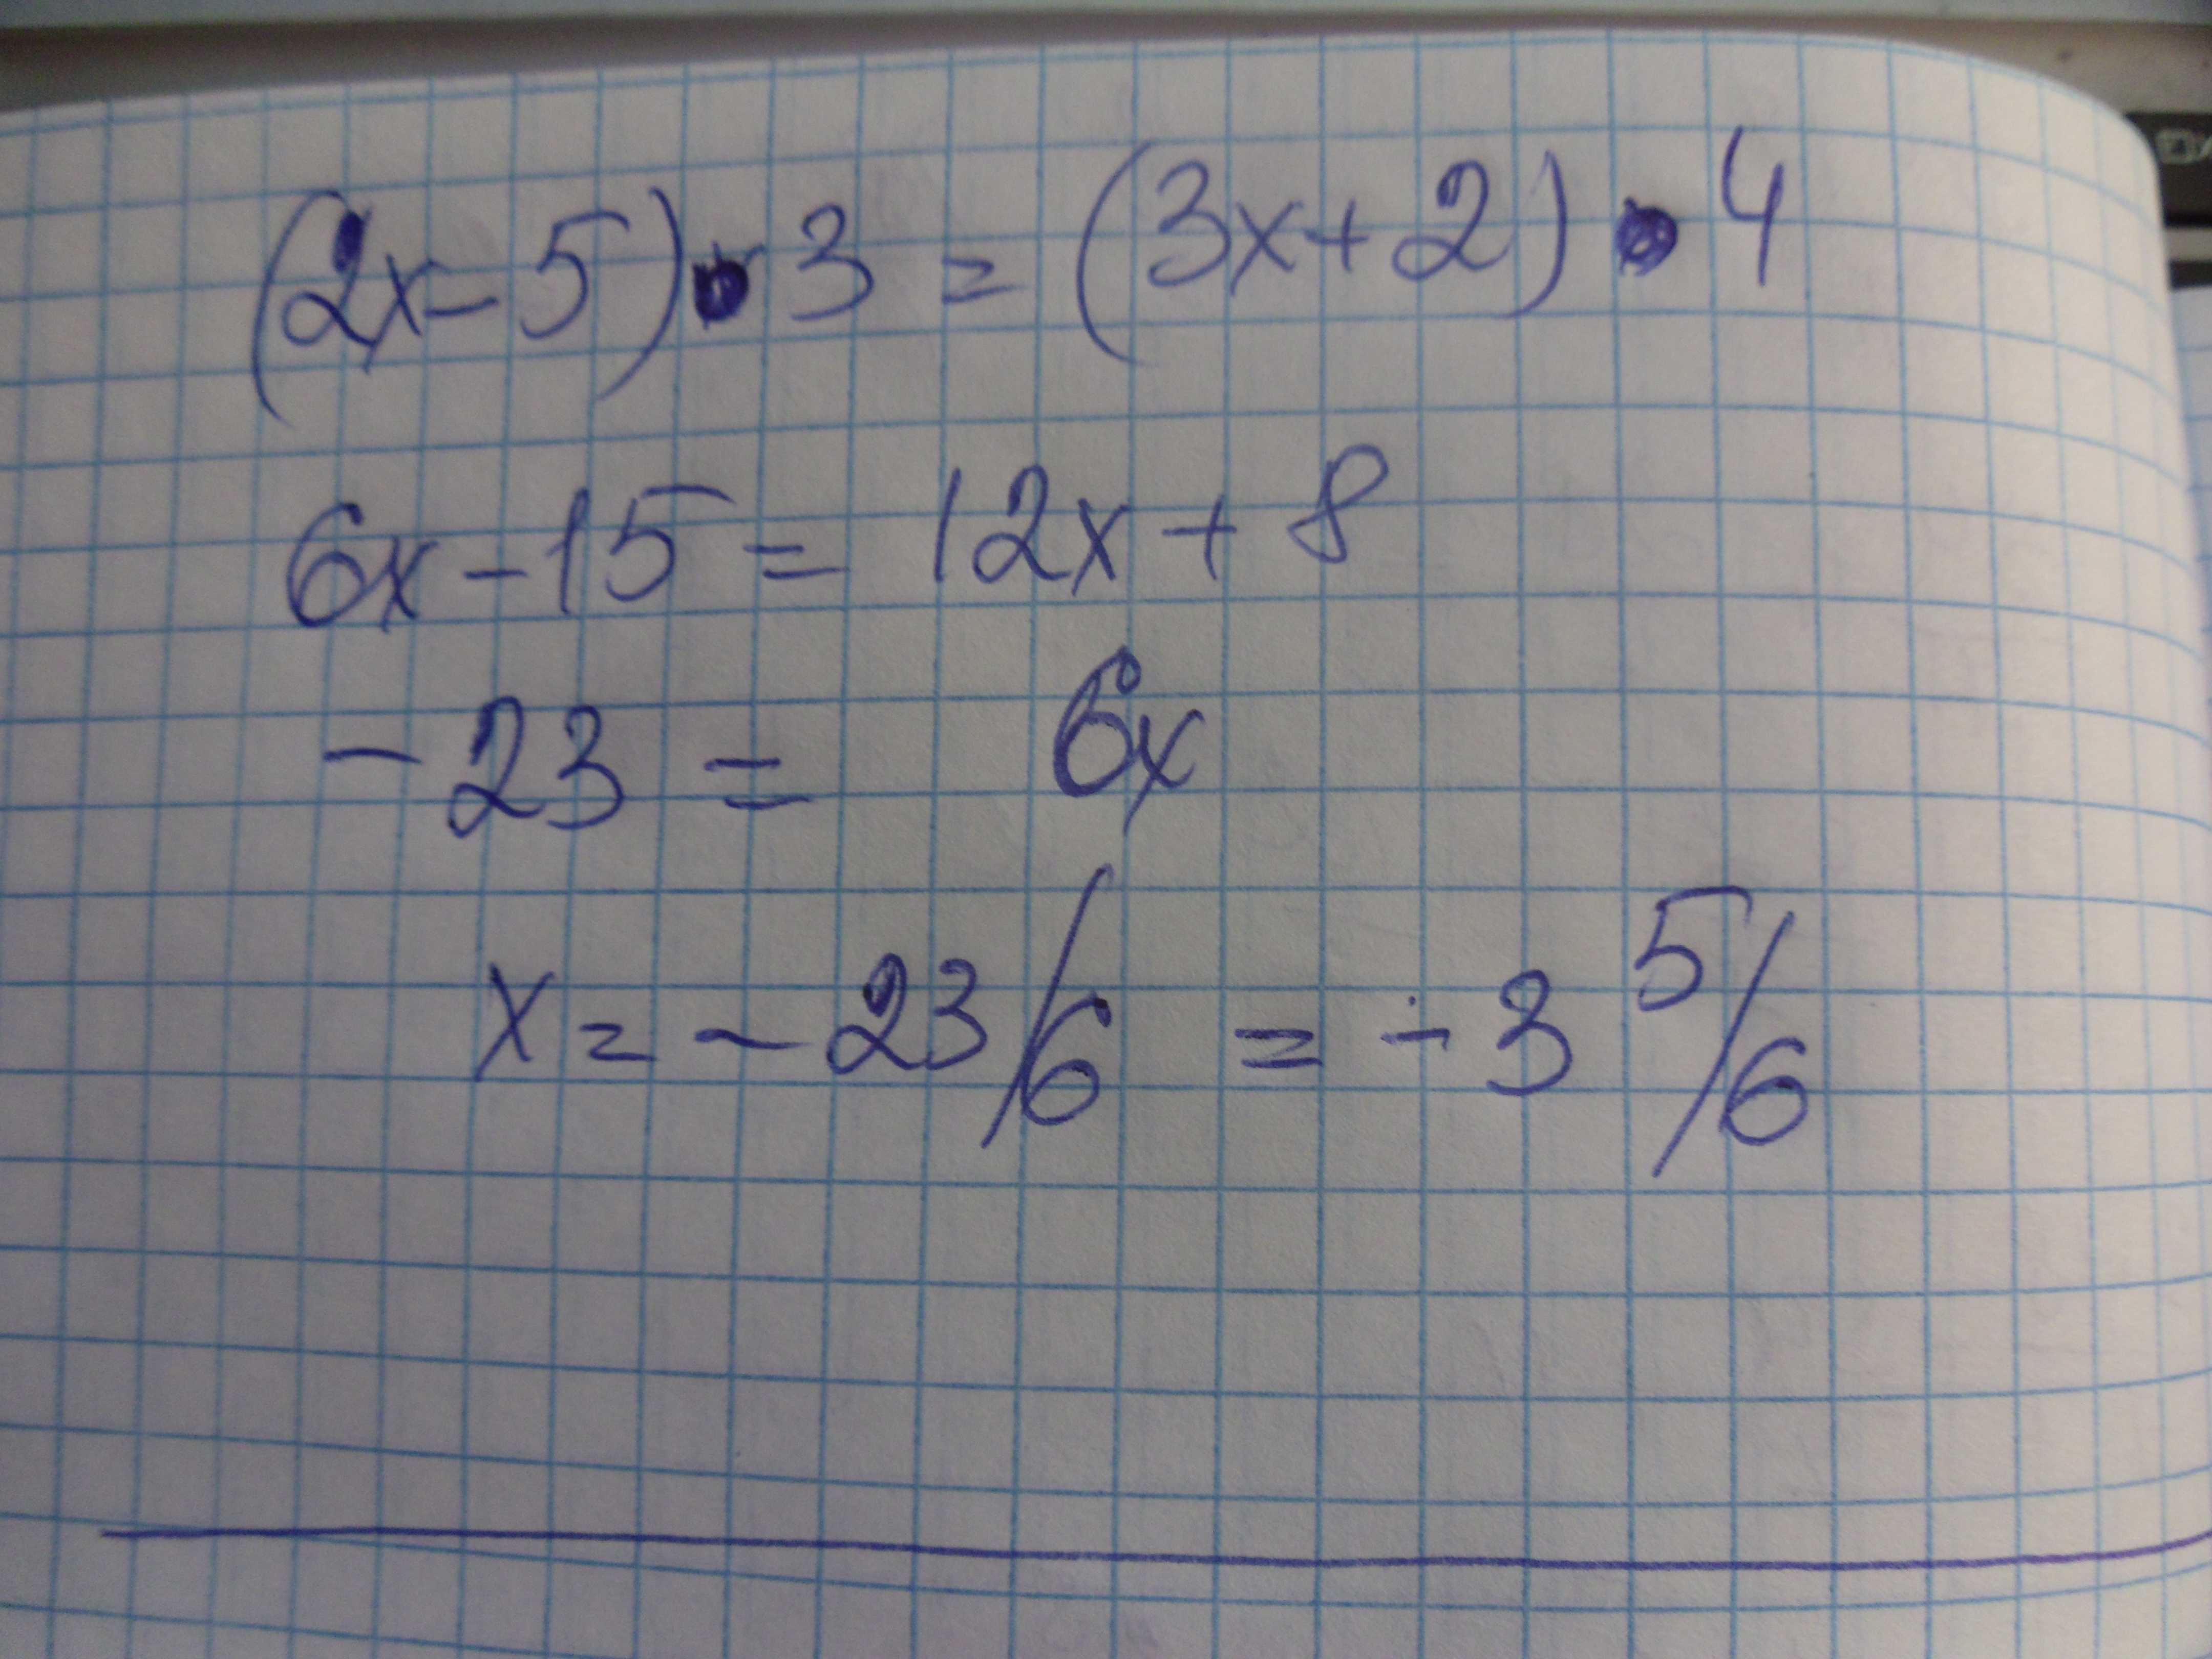 (2x-5)•3=(3x+2)•4
6x-15=12x+8
-23=6x
x=-23/6=-3 5/6